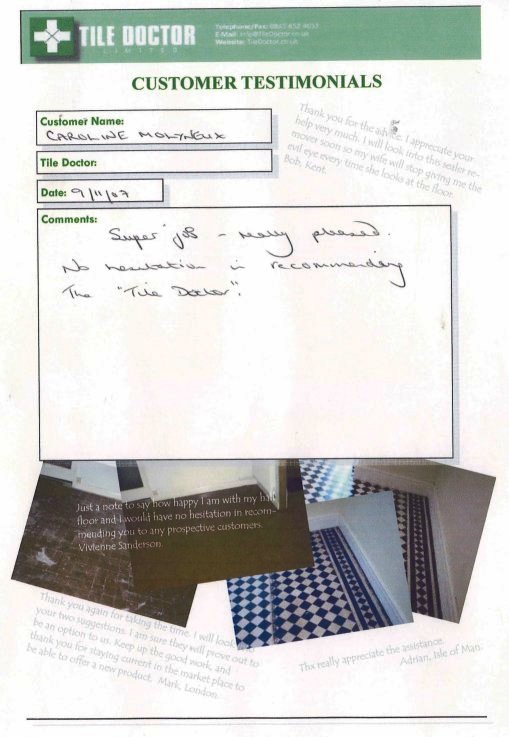 TILE DOCTOR
LIMITED
Telephone/Fax: 0845 652 4053
E-Mail: info@TileDoctor.co.uk
Website: TileDoctor.co.uk
CUSTOMER TESTIMONIALS
Customer Name:
CAROLINE MOLYNEUX
Tile Doctor:
Date: 9/11/07
Thank you for the advice. I appreciate your
help very much. I will look into this sealer re-
mover soon so my wife will stop giving me the
evil eye every time she looks at the floor.
Bob, Kent.
Comments:
Super job - really pleased.
No hesitation in recommending
The "Tile Doctor".
Just a note to say how happy I am with my hall
floor and I would have no hesitation in recom-
mending you to any prospective customers.
Vivienne Sanderson.
Thank you again for taking the time. I will look
your two suggestions. I am sure they will prove out to
be an option to us. Keep up the good work, and
thank you for staying current in the market place to
be able to offer a new product. Mark, London.
Thx really appreciate the assistance.
Adrian, Isle of Man.